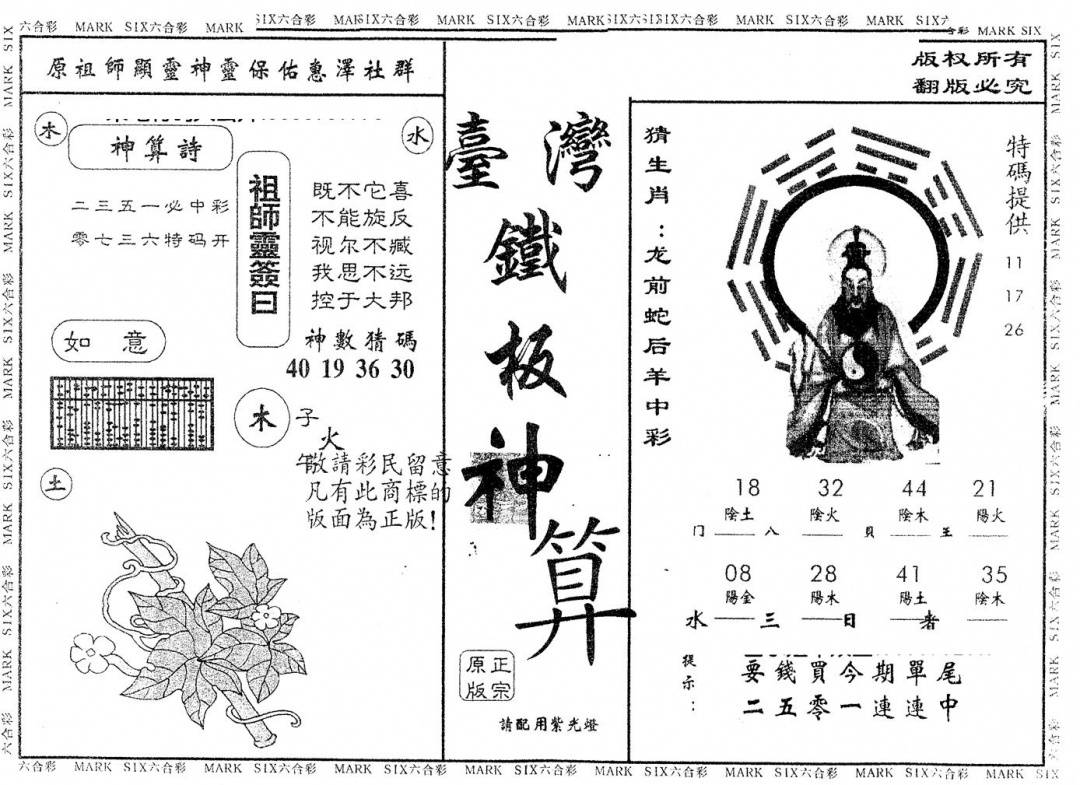 六合彩 MARK SIX六合彩 MARK SIX六合彩 MARK SIX六合彩 MARK SIX六合彩 MARK SIX六合彩 MARK SIX六合彩 MARK SIX
原祖師顯靈神靈保佑惠澤社群
版权所有
翻版必究
木
水
神算詩
二三五一必中彩
零七三六特码开
祖師靈簽曰
既不它喜
不能旋反
视尔不臧
我思不远
控于大邦
神數猜碼
40 19 36 30
如 意
木
子
火
午
敬請彩民留意
凡有此商標的
版面為正版!
土
臺灣
鐵
板
神
算
正宗
原版
請配用紫光燈
猜生肖:龙前蛇后羊中彩
特碼提供
11
17
26
18 32 44 21
陰土 陰火 陰木 陽火
门 八 貝 王
08 28 41 35
陽金 陽木 陽土 陰木
水 三 日 者
提示:
要錢買今期單尾
二五零一連連中
六合彩 MARK SIX六合彩 MARK SIX六合彩 MARK SIX六合彩 MARK SIX六合彩 MARK SIX六合彩 MARK SIX六合彩 MARK SIX六合彩 MARK SIX